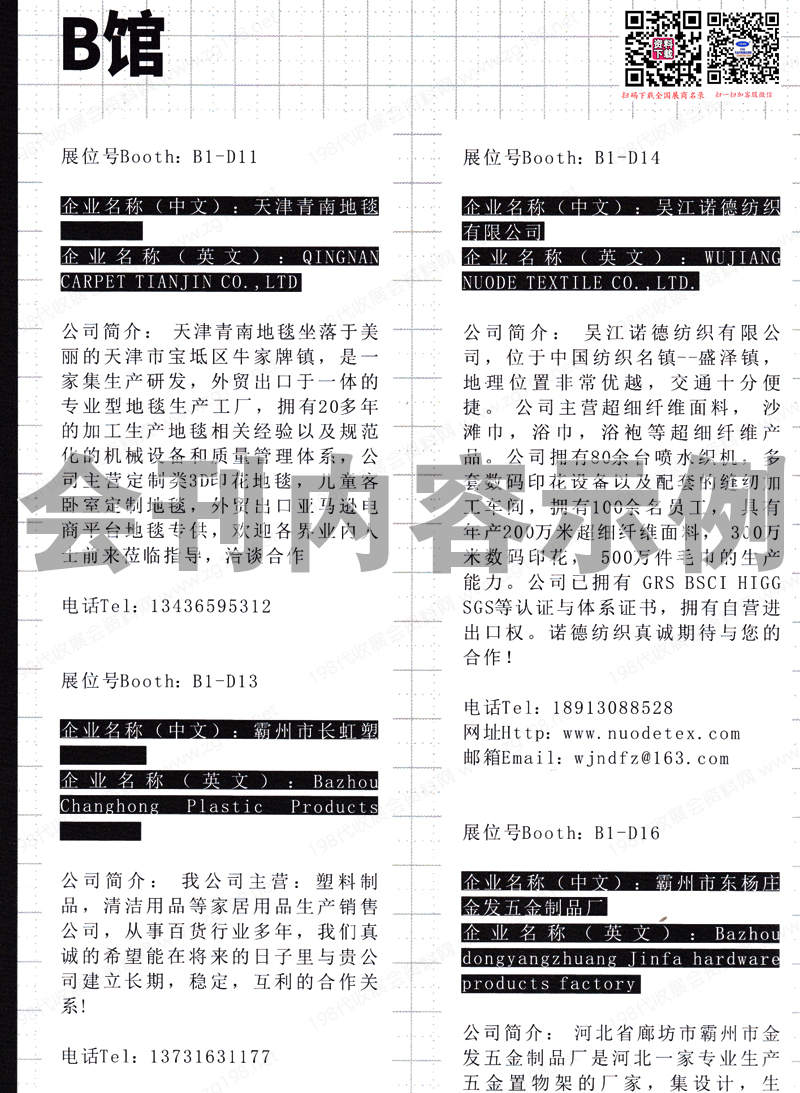 B馆
资料
下载
扫码下载全国展商名录
扫一扫加客服微信
展位号Booth: B1-D11
企业名称（中文）：天津青南地毯
企业名称（英文）：QINGNAN
CARPET TIANJIN CO.,LTD
公司简介： 天津青南地毯坐落于美
丽的天津市宝坻区牛家牌镇，是一
家集生产研发，外贸出口于一体的
专业型地毯生产工厂，拥有20多年
的加工生产地毯相关经验以及规范
化的机械设备和质量管理体系，公
司主营定制类3D印花地毯，儿童客
卧室定制地毯，外贸出口亚马逊电
商平台地毯专供，欢迎各界业内人
士前来莅临指导，洽谈合作
电话Tel: 13436595312
展位号Booth: B1-D13
企业名称（中文）：霸州市长虹塑
企业名称（英文）：Bazhou
Changhong Plastic Products
公司简介： 我公司主营：塑料制
品，清洁用品等家居用品生产销售
公司，从事百货行业多年，我们真
诚的希望能在将来的日子里与贵公
司建立长期，稳定，互利的合作关
系!
电话Tel: 13731631177
展位号Booth: B1-D14
企业名称（中文）：吴江诺德纺织
有限公司
企业名称（英文）：WUJIANG
NUODE TEXTILE CO.,LTD.
公司简介： 吴江诺德纺织有限公
司，位于中国纺织名镇--盛泽镇，
地理位置非常优越，交通十分便
捷。 公司主营超细纤维面料， 沙
滩巾，浴巾，浴袍等超细纤维产
品。公司拥有80余台喷水织机，多
套数码印花设备以及配套的缝纫加
工车间，拥有100余名员工，具有
年产200万米超细纤维面料，300万
米数码印花， 500万件毛巾的生产
能力。公司已拥有 GRS BSCI HIGG
SGS等认证与体系证书，拥有自营进
出口权。诺德纺织真诚期待与您的
合作！
电话Tel: 18913088528
网址Http: www.nuodetex.com
邮箱Email: wjndfz@163.com
展位号Booth: B1-D16
企业名称（中文）：霸州市东杨庄
金发五金制品厂
企业名称（英文）：Bazhou
dongyangzhuang Jinfa hardware
products factory
公司简介： 河北省廊坊市霸州市金
发五金制品厂是河北一家专业生产
五金置物架的厂家，集设计，生
会刊内容示例